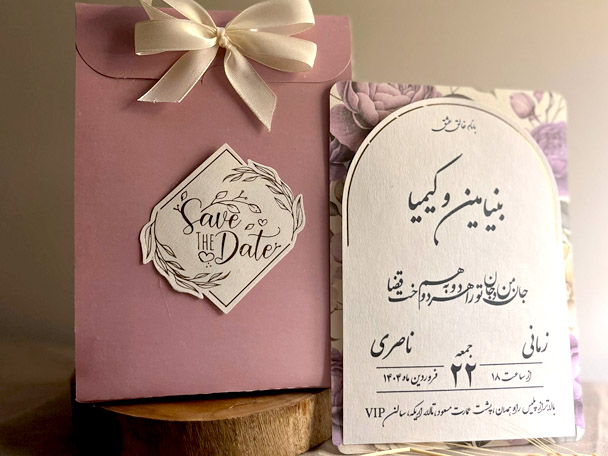 Save
THE
Date
بنام خالق عشق
بنیامین و کیمیا
جان من و جان تو را هر دو به هم دوخت قضا
زمانی
ناصری
از ساعت ۱۸
جمعه
۲۲
فروردین ماه ۱۴۰۴
بالاتر از پلیس راه همدان، پشت عمارت مسعود، تالار اریکه، سالن VIP